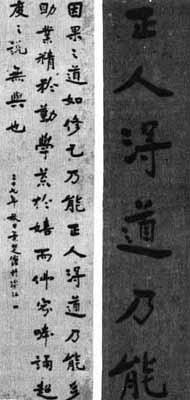 正人得道乃能
因果之道如修己乃能正人得道乃能多
助業精於勤學荒於嬉而佛家唪誦超
度之說無與也